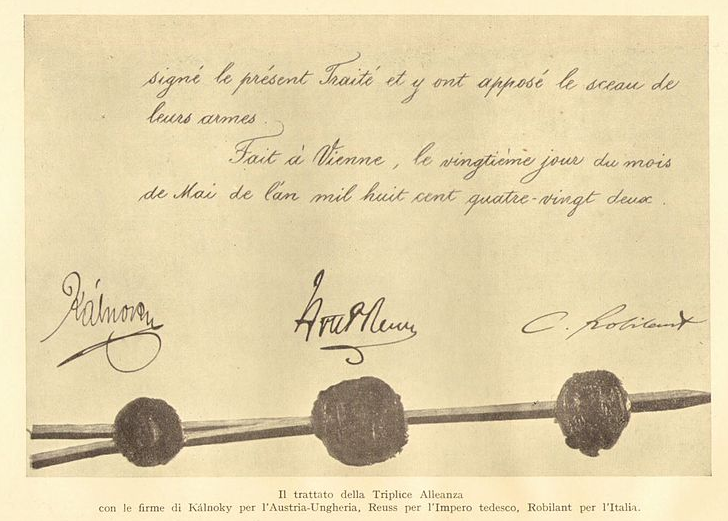 signé le présent Traité et y ont apposé le sceau de
leurs armes.
Fait à Vienne, le vingtième jour du mois
de Mai de l'an mil huit cent quatre-vingt deux.
Kálnoky
Reuss
C. Robilant
Il trattato della Triplice Alleanza
con le firme di Kálnoky per l'Austria-Ungheria, Reuss per l'Impero tedesco, Robilant per l'Italia.